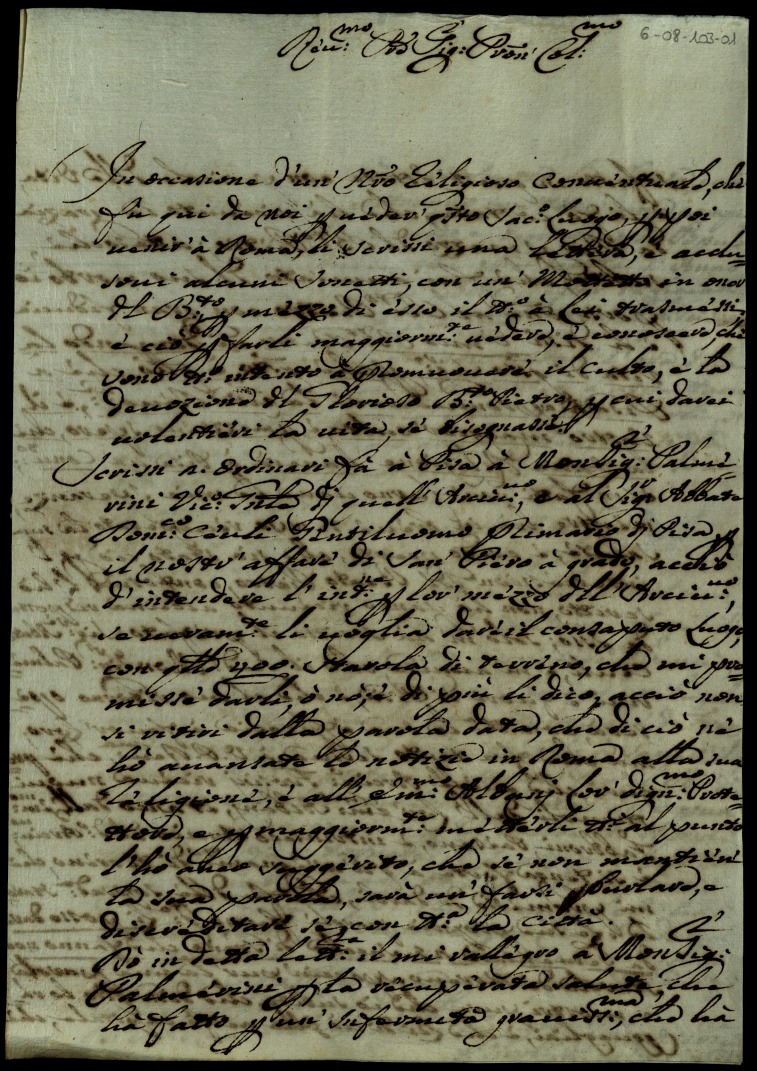 6-08-103-01
Rev:mo Pre Sig: Pron' Col:mo
In occasione d'un' Nro Religioso Conventuale, che
fu qui da noi p veder' qsto Sac:o Luogo, p poi
venir' à Roma, li scrissi una lettera, è acclu=
sevi alcuni Sonetti, con un' Mottetto in onor
del B:to, p mezzo di esso il tt:o à Lei trasmessi,
è ciò p farli maggiorm:te vedere, è conoscere, che
sono tt:o intento à Promuovere il culto, è la
devozione del Glorioso B:to Pietro, p cui darei
volentieri la vita, se bisognasse.
Scrissi a: ordinari fà à Pisa à MonSig:r Palme=
rini Vic:o Gnle di quell' Arciv:mo, e al Sig:r Abbate
Dom:co Ceuli Gentiluomo Primario di Pisa p
il nostr' affare di San' Piero à grado, acciò
d'intendere l'int:ne p lor' mezzo dell' Arciv:mo,
se veram:te li voglia dare il consaputo Luogo,
con' qlle 400. Stavola di terreno, che mi pro=
misse darli, ò nò, è di più li dico, acciò non
si ritiri dalla parola data, che di ciò nè
hò avanzate le notizie in Roma alla sua
Religione, è all' Em:mo Albanj lor' dign:mo Prote=
ttore, e p maggiorm:te metterli tt:o al punto
l'hò anco suggerito, che se non mantien'
la sua parola, sarà un' farsi burlare, e
discreditare sè, con tt:a la città.
Dò in detta lett:ra il mi rallegro à MonSig:r
Palmerini p la recuperata salute, che
hà fatto p un' infermità graviss:ma, che hà